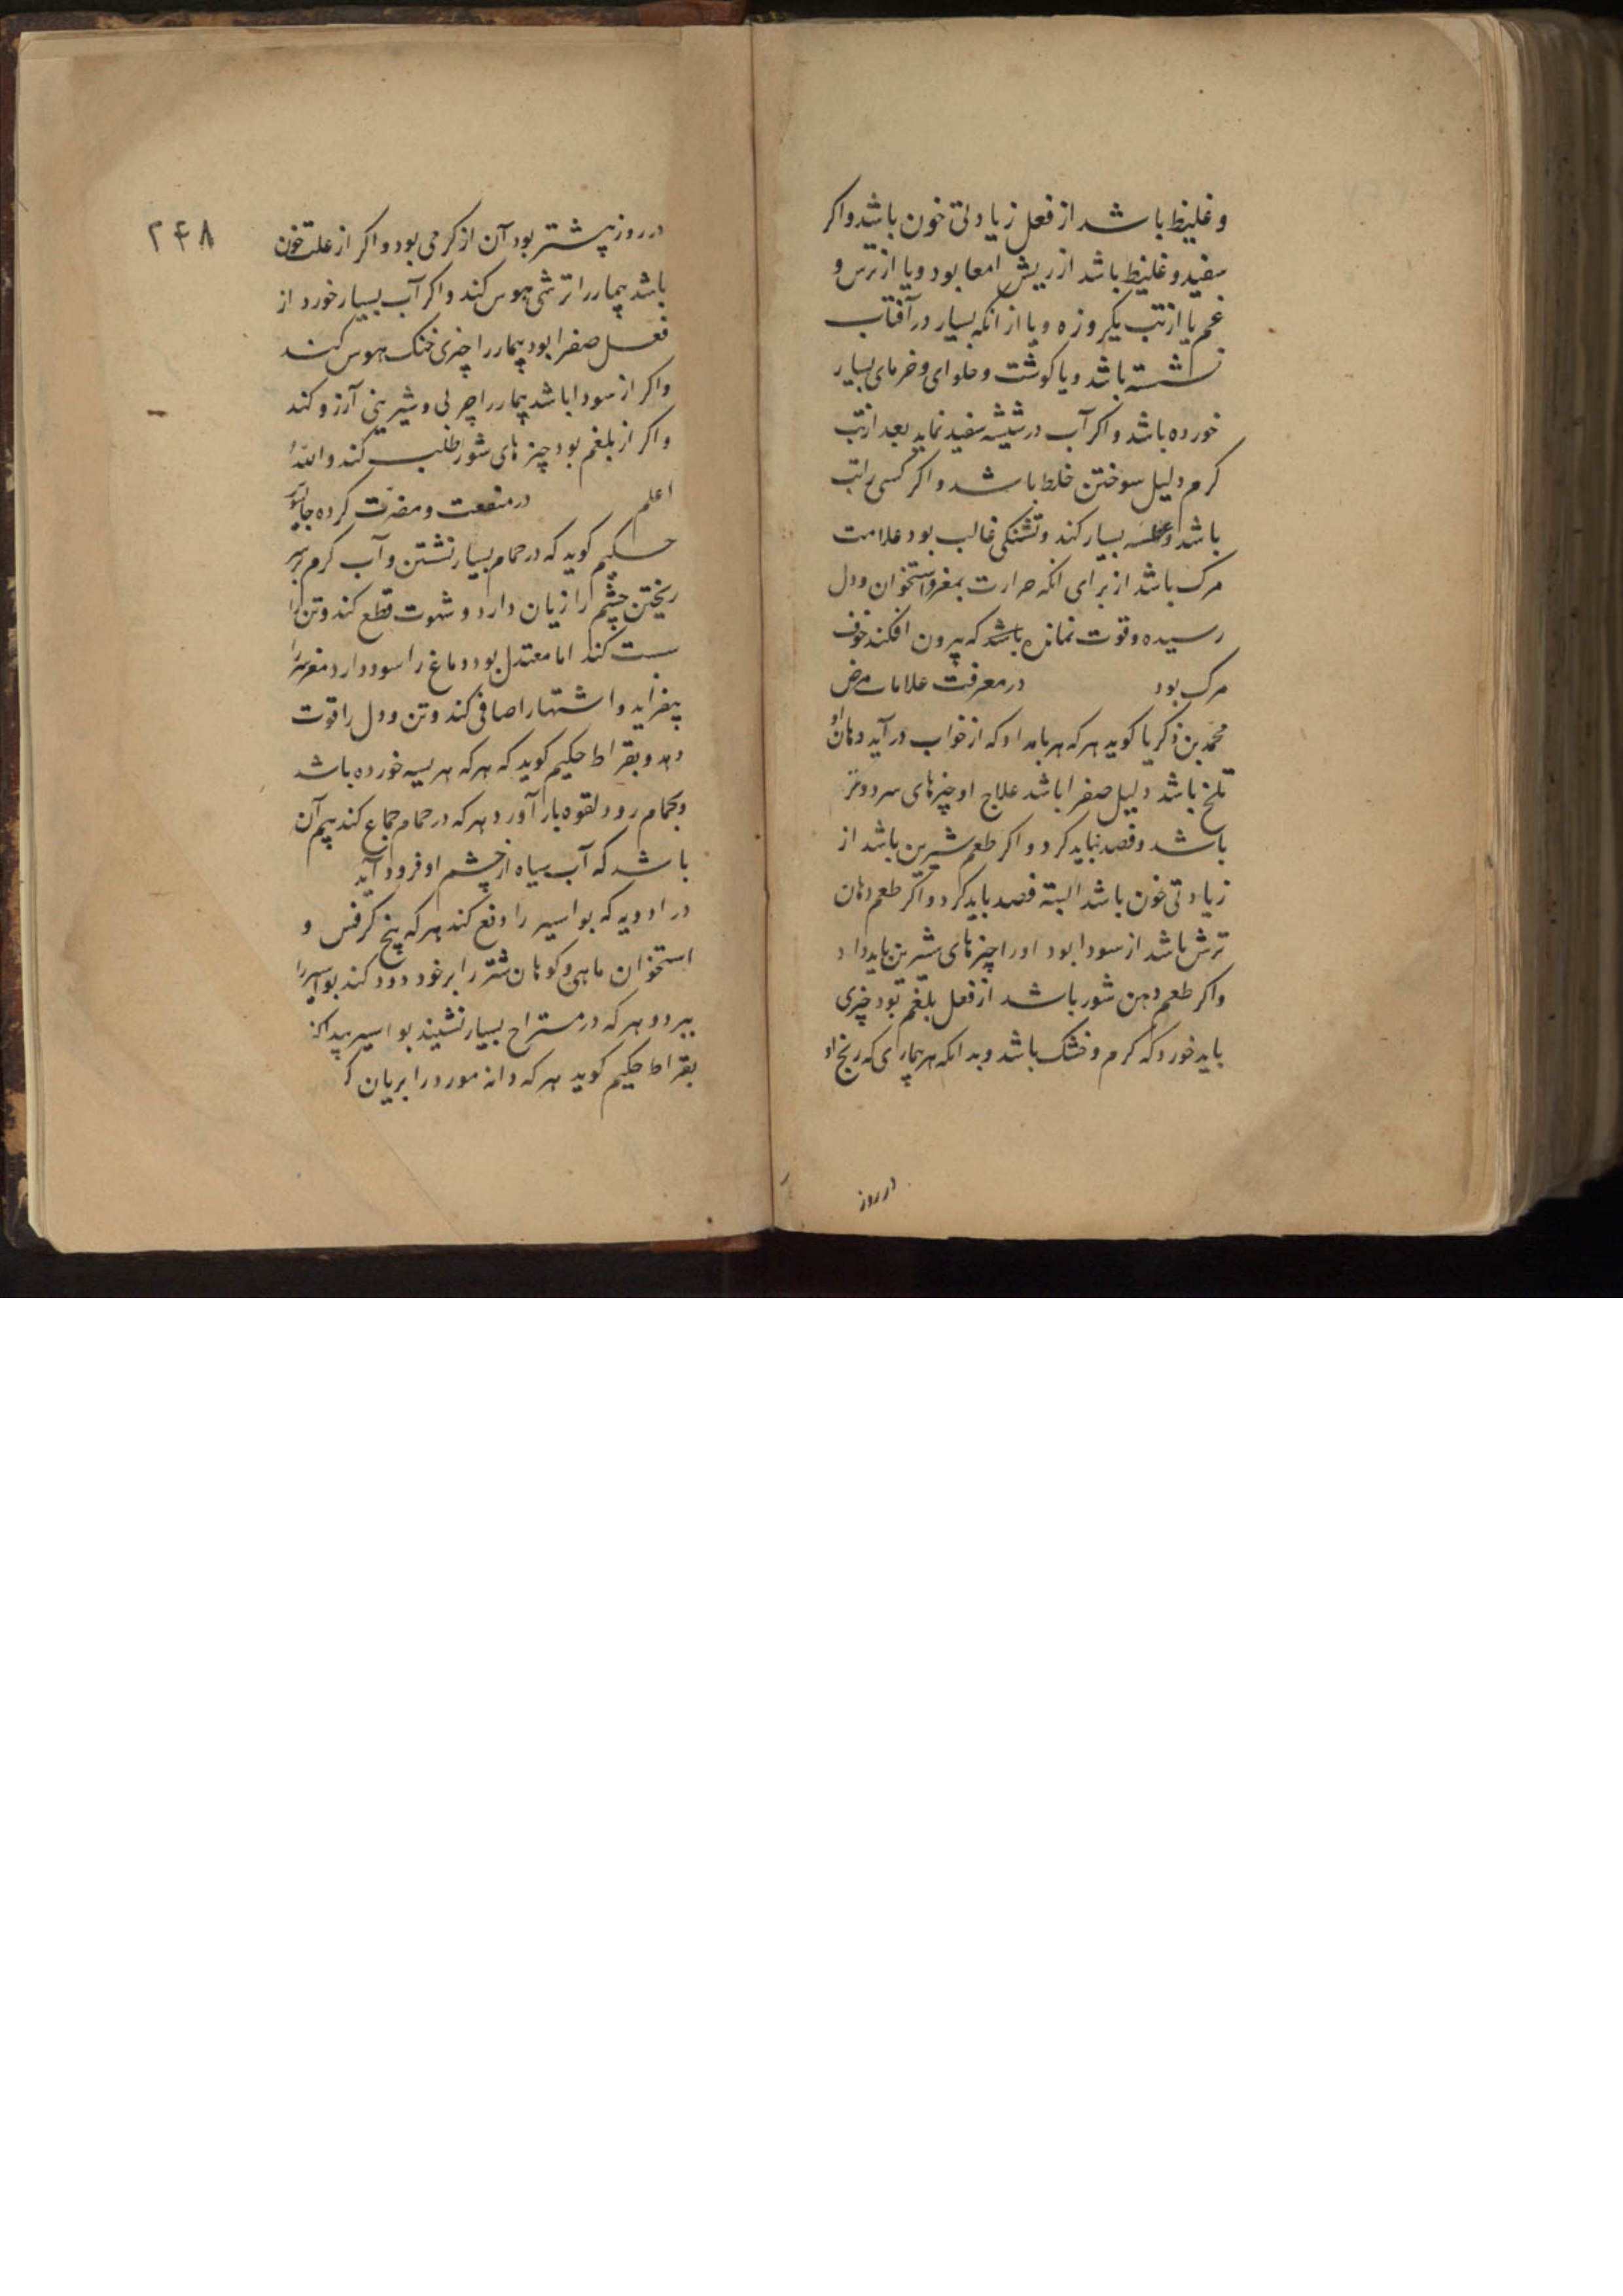 و غلیظ باشد از فعل زیادتی خون باشد و اکر
سفید و غلیظ باشد از ریش امعا بود و یا از ترس و
غم یا از تب یکروزه و یا از انکه بسیار در آفتاب
نشسته باشد و یا کوشت و حلوای و خرمای بسیار
خورده باشد و اکر آب در شیشه سفید نماید بعد از تب
کرم دلیل سوختن خلط باشد و اکر کسی را تب
باشد و عطسه بسیار کند و تشنکی غالب بود علامت
مرک باشد از برای انکه حرارت بمغز و استخوان و دل
رسیده و قوت نمانده باشد که بیرون افکند خوف
مرک بود در معرفت علامات مرض
محمد بن زکریا کوید هر که هر بامداد که از خواب در آید دهان او
تلخ باشد دلیل صفرا باشد علاج او چیزهای سرد و تر
باشد و فصد نباید کرد و اکر طعم شیرین باشد از
زیادتی خون باشد البته فصد باید کرد و اکر طعم دهان
ترش باشد از سودا بود او را چیزهای شیرین باید داد
و اکر طعم دهن شور باشد از فعل بلغم بود چیزی
باید خورد که کرم و خشک باشد و بدانکه هر بیماری که رنج او
در روز
۲۴۸
در روز بیشتر بود آن از کرمی بود و اکر از علت خون
باشد بیمار را ترشی هوس کند و اکر آب بسیار خورد از
فعل صفرا بود بیمار را چیزی خنک هوس کند
و اکر از سودا باشد بیمار را چربی و شیرینی آرزو کند
و اکر از بلغم بود چیزهای شور طلب کند والله
اعلم در منفعت و مضرت کرده جالینوس
حکیم کوید که در حمام بسیار نشستن و آب کرم بر سر
ریختن چشم را زیان دارد و شهوت قطع کند و تن را
سست کند اما معتدل بود دماغ را سود دارد مغز سر را
بیفزاید و اشتها را صافی کند و تن و دل را قوت
دهد و بقراط حکیم کوید که هر که هریسه خورده باشد
و بحمام رود لقوه بار آورد و هر که در حمام جماع کند بیم آن
باشد که آب سیاه از چشم او فرود آید
در ادویه که بواسیر را دفع کند هر که بیخ کرفس و
استخوان ماهی و کوهان شتر را بر خود دود کند بواسیر را
ببرد و هر که در مستراح بسیار نشیند بواسیر پیدا کند
بقراط حکیم کوید هر که دانه مورد را بریان